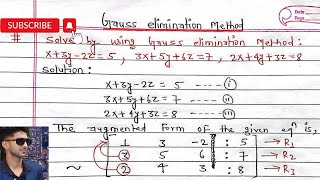 Gauss elimination Method
SUBSCRIBE
Date
Page
# Solve by using Gauss elimination Method:
x+3y-2z = 5 , 3x+5y+6z=7 , 2x+4y+3z=8
Solution:
x+3y-2z = 5 ——— (i)
3x+5y+6z = 7 ——— (ii)
2x+4y+3z = 8 ——— (iii)
The augmented form of the given eqn is,
1 3 -2 : 5 → R1
~ 3 5 6 : 7 → R2
2 4 3 : 8 → R3